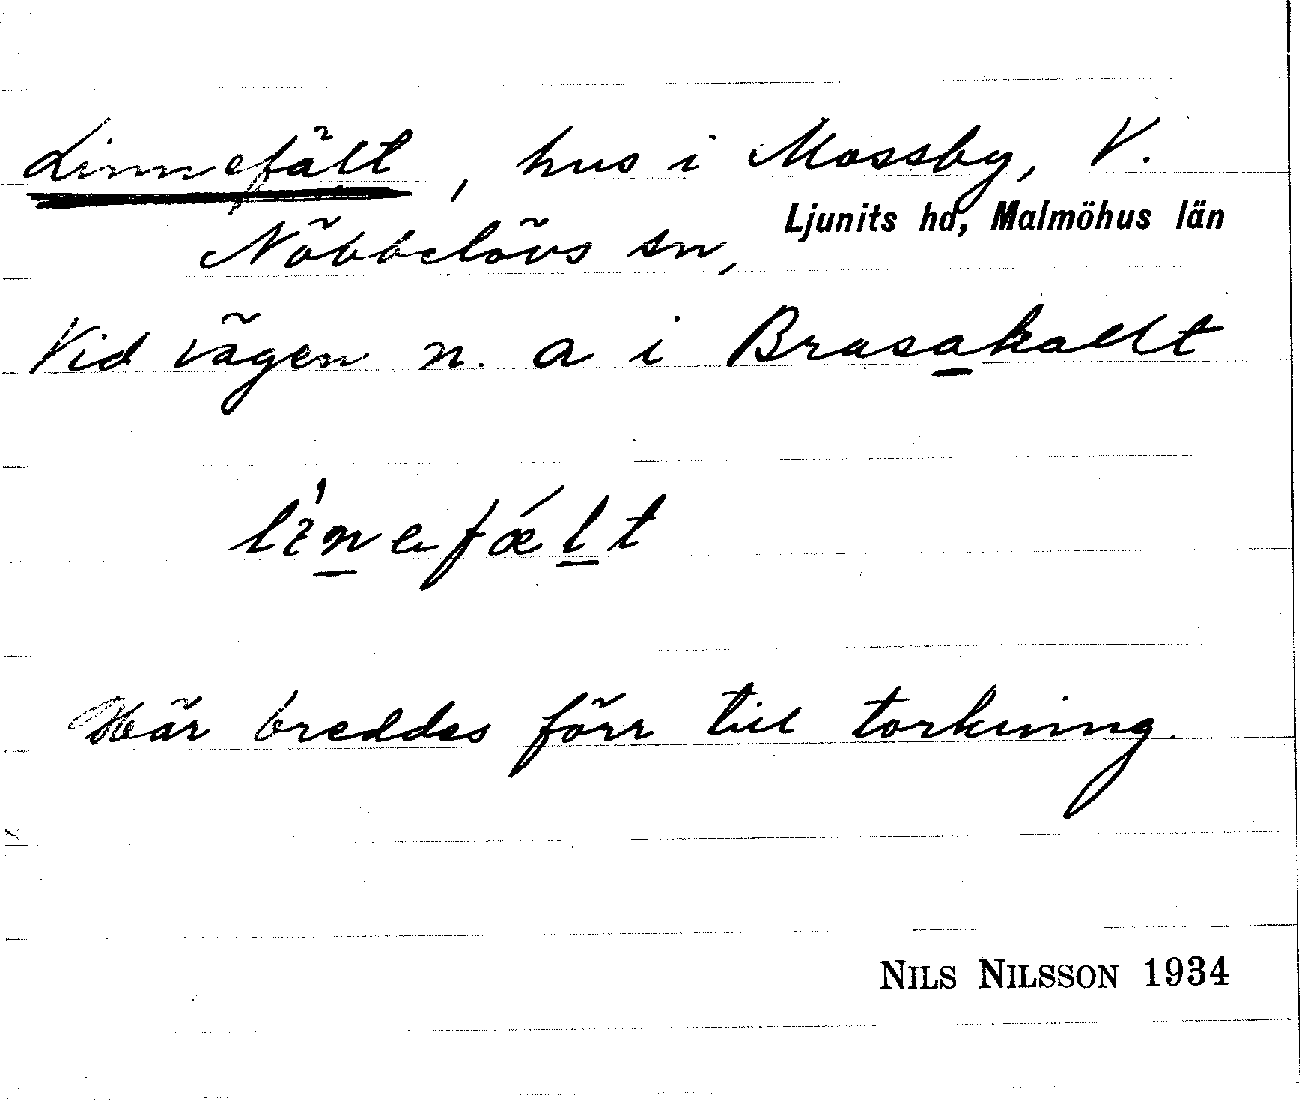 Linnefält, hus i Mossby, V.
Nöbbelövs sn, Ljunits hd, Malmöhus län
Vid vägen n. a i Brasakallt
linefælt
Här breddes förr till torkning.
NILS NILSSON 1934